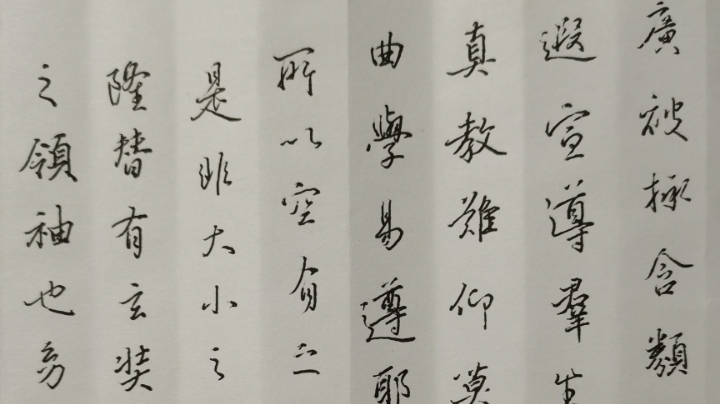 廣被拯含類
遐宣導羣生
真教難仰莫
曲學易遵耶
所以空有之
是非大小之
隆替有玄奘
之領袖也幼